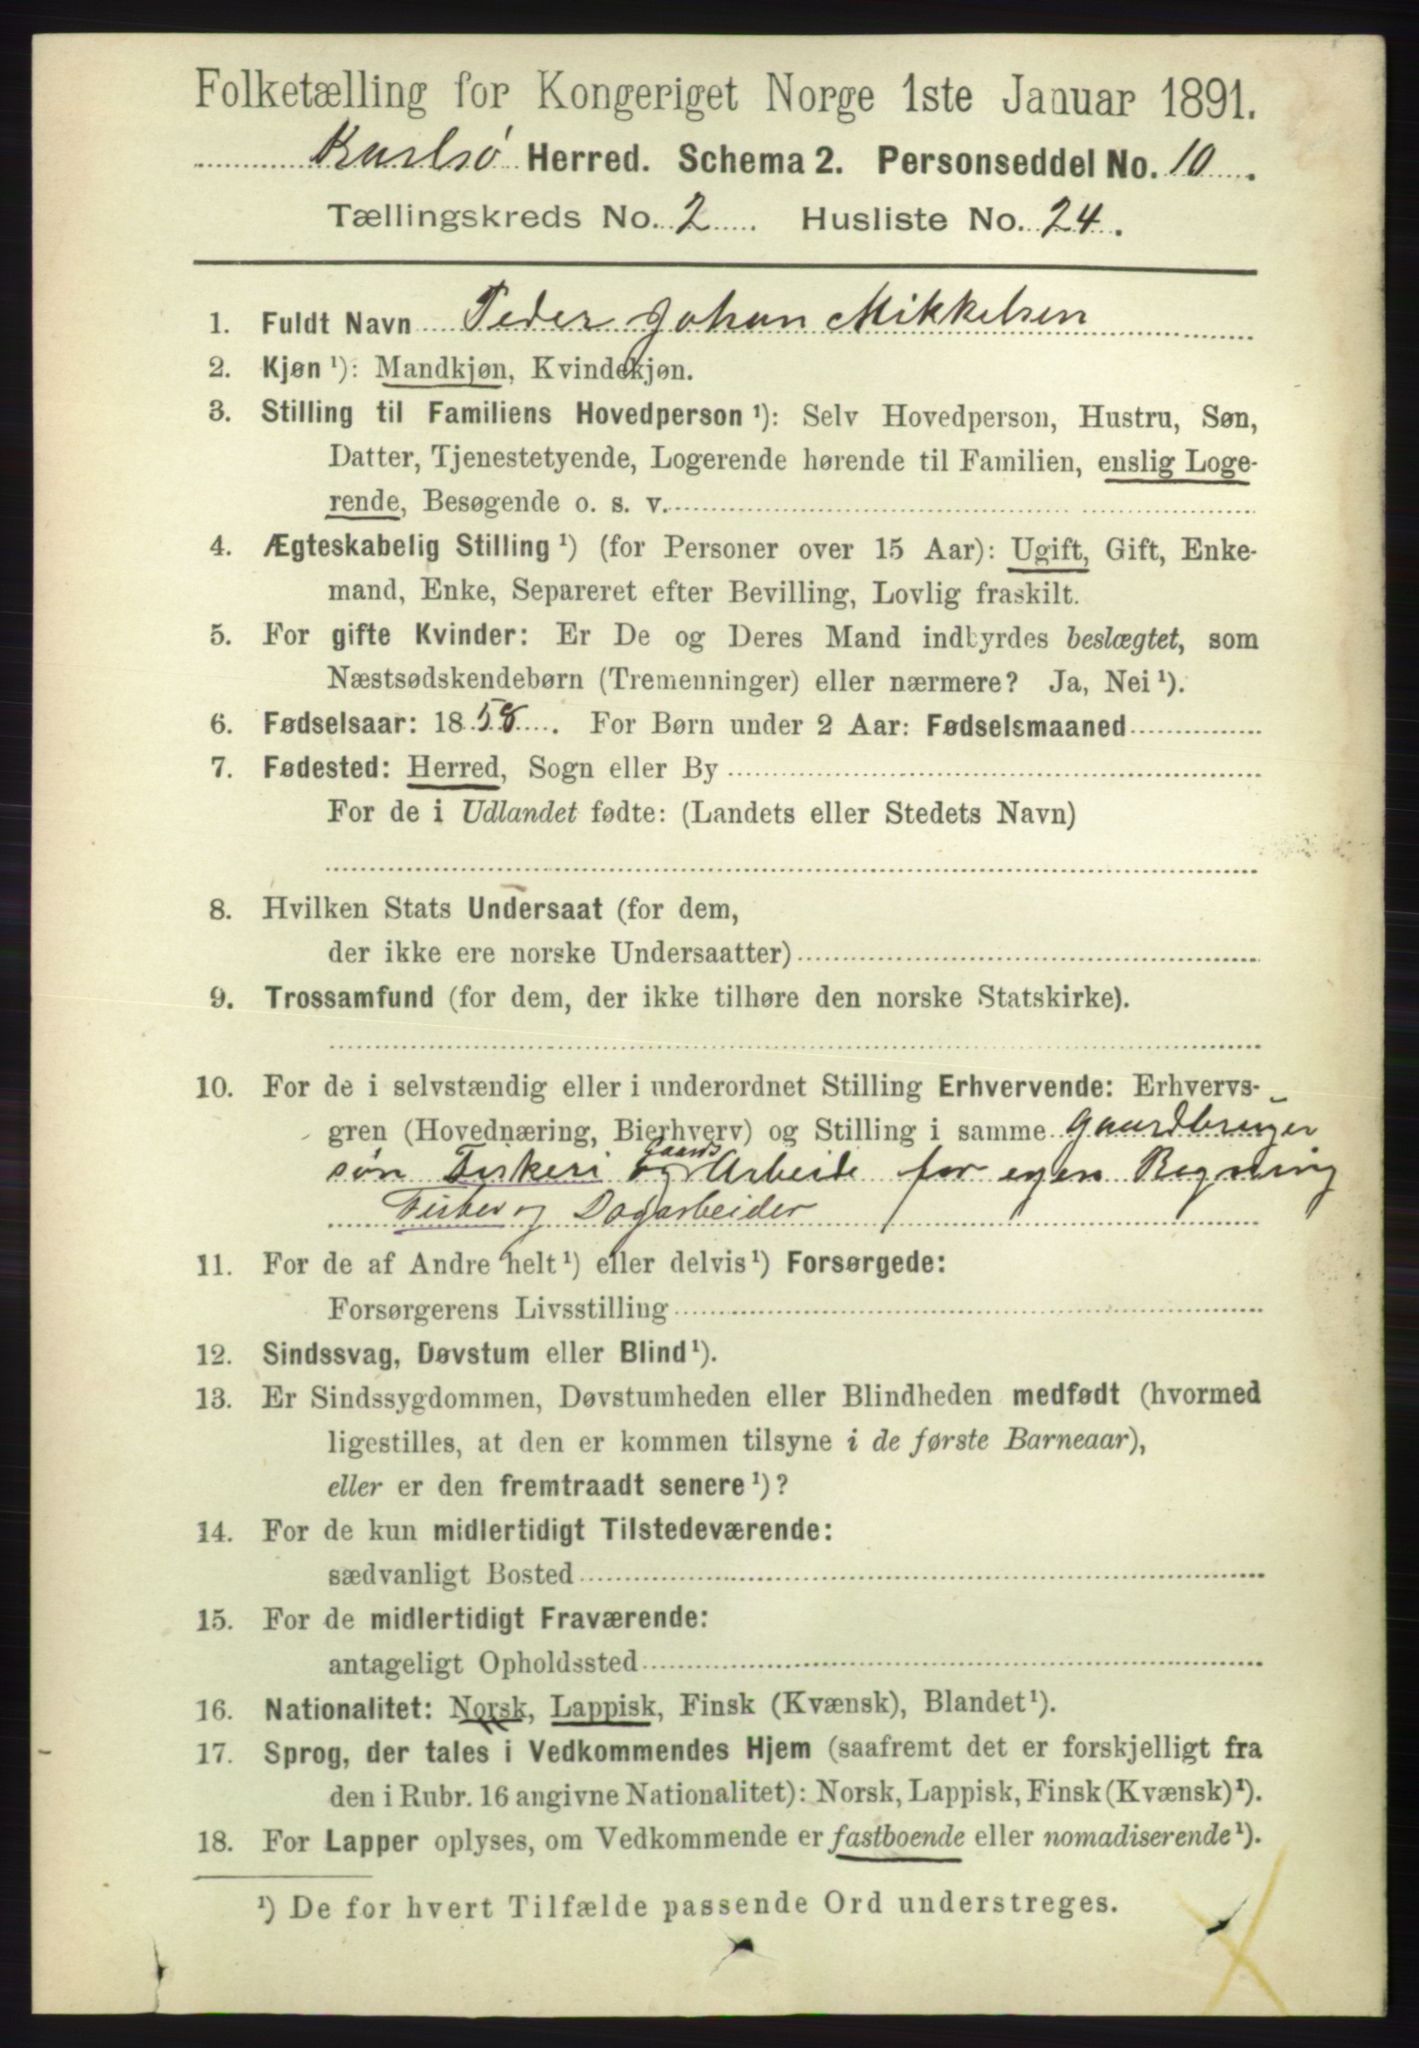 Folketælling for Kongeriget Norge 1ste Januar 1891.
Karlsø Herred. Schema 2. Personseddel No. 10.
Tællingskreds No. 2. Husliste No. 24.
1. Fuldt Navn Peder Johan Mikkelsen
2. Kjøn ¹): Mandkjøn, Kvindekjøn.
3. Stilling til Familiens Hovedperson ¹): Selv Hovedperson, Hustru, Søn,
Datter, Tjenestetyende, Logerende hørende til Familien, enslig Loge-
rende, Besøgende o. s. v.
4. Ægteskabelig Stilling ¹) (for Personer over 15 Aar): Ugift, Gift, Enke-
mand, Enke, Separeret efter Bevilling, Lovlig fraskilt.
5. For gifte Kvinder: Er De og Deres Mand indbyrdes beslægtet, som
Næstsødskendebørn (Tremenninger) eller nærmere? Ja, Nei ¹).
6. Fødselsaar: 1858. For Børn under 2 Aar: Fødselsmaaned
7. Fødested: Herred, Sogn eller By
For de i Udlandet fødte: (Landets eller Stedets Navn)
8. Hvilken Stats Undersaat (for dem,
der ikke ere norske Undersaatter)
9. Trossamfund (for dem, der ikke tilhøre den norske Statskirke).
10. For de i selvstændig eller i underordnet Stilling Erhvervende: Erhvervs-
gren (Hovednæring, Bierhverv) og Stilling i samme Gaardbruger
Gaards
søn Fiskeri og Arbeide for egen Regning
Fisker og Dagarbeider
11. For de af Andre helt ¹) eller delvis ¹) Forsørgede:
Forsørgerens Livsstilling
12. Sindssvag, Døvstum eller Blind ¹).
13. Er Sindssygdommen, Døvstumheden eller Blindheden medfødt (hvormed
ligestilles, at den er kommen tilsyne i de første Barneaar),
eller er den fremtraadt senere ¹)?
14. For de kun midlertidigt Tilstedeværende:
sædvanligt Bosted
15. For de midlertidigt Fraværende:
antageligt Opholdssted
16. Nationalitet: Norsk, Lappisk, Finsk (Kvænsk), Blandet ¹).
17. Sprog, der tales i Vedkommendes Hjem (saafremt det er forskjelligt fra
den i Rubr. 16 angivne Nationalitet): Norsk, Lappisk, Finsk (Kvænsk) ¹).
18. For Lapper oplyses, om Vedkommende er fastboende eller nomadiserende ¹).
¹) De for hvert Tilfælde passende Ord understreges.